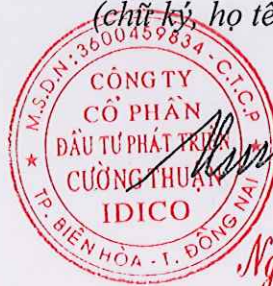 (chữ ký, họ tê
M.S.D.N:3600459834-C.T.C.P
CÔNG TY
CỔ PHẦN
ĐẦU TƯ PHÁT TRIỂN
CƯỜNG THUẬN
IDICO
TP. BIÊN HÒA - T. ĐỒNG NAI
Ng